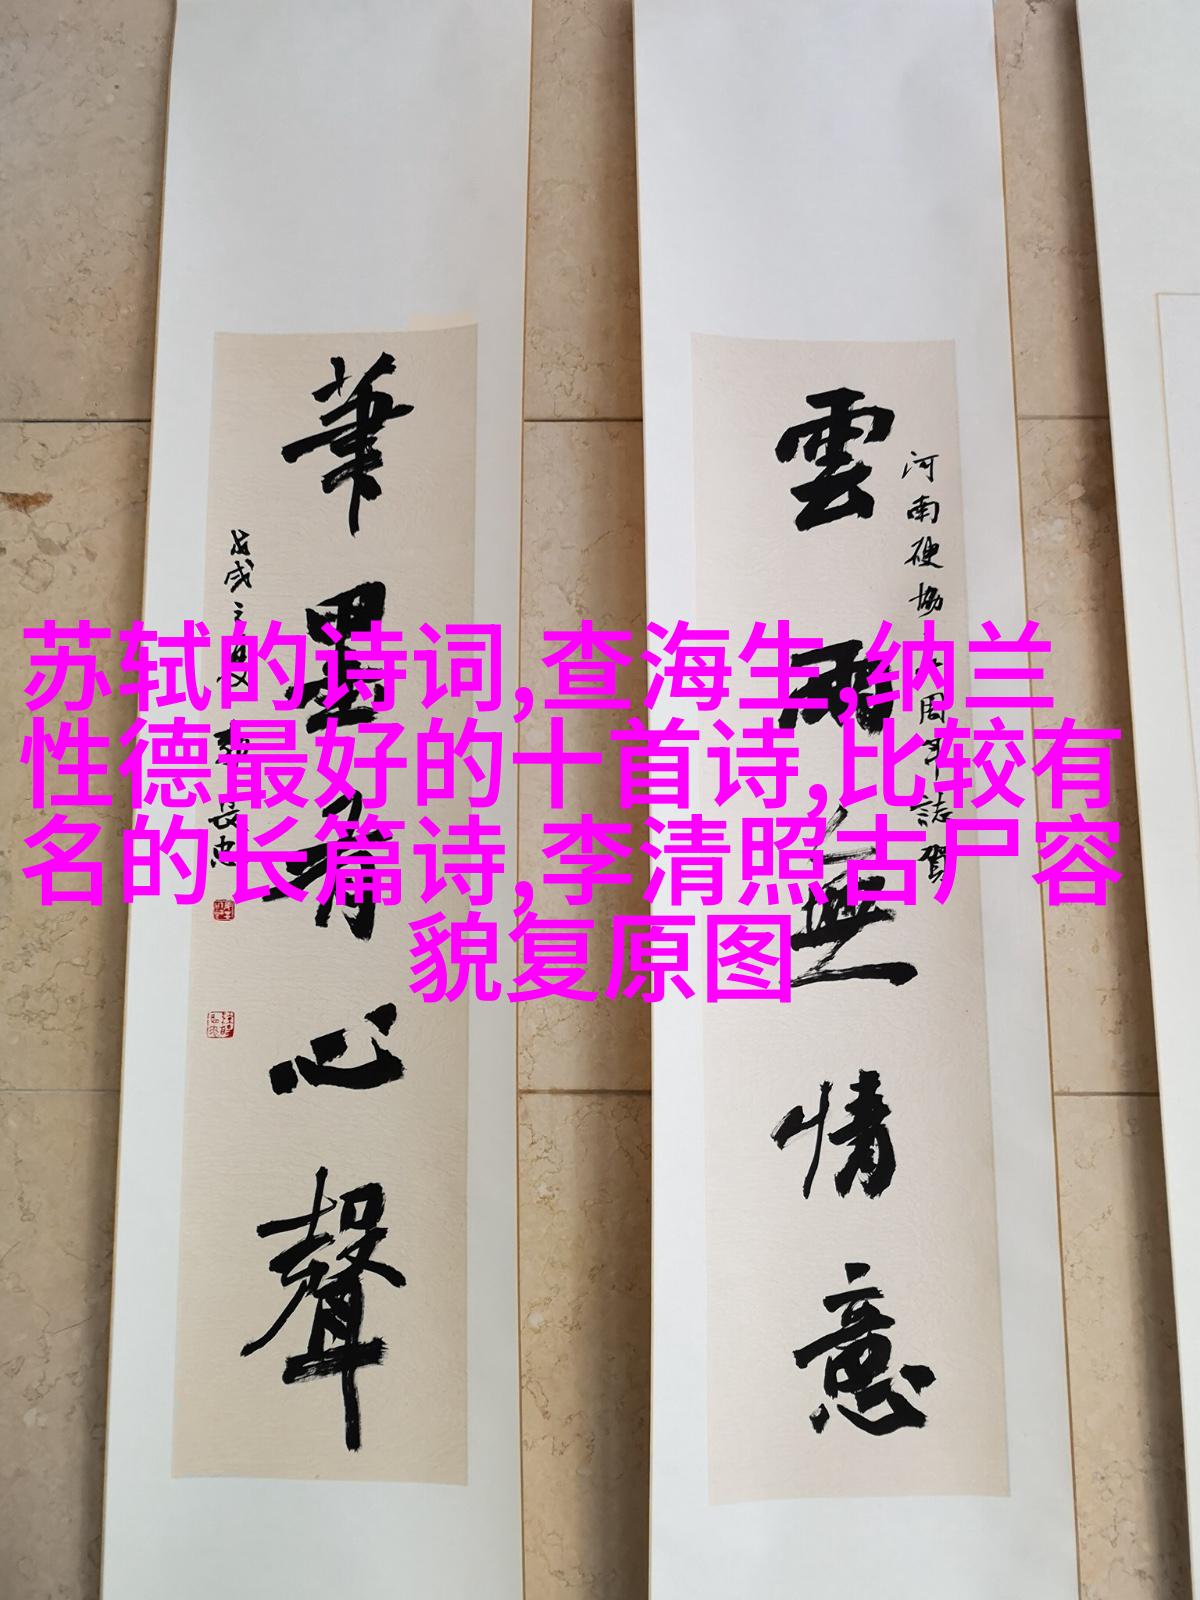 苏轼的诗词,查海生,纳兰
性德最好的十首诗,比较有
名的长篇诗,李清照古尸容
貌复原图
河南硬協周年誌賀
雲雨無情意
筆墨有心聲
戊戌之夏